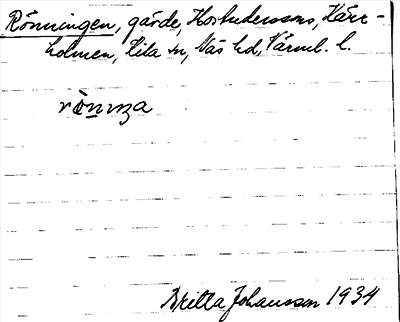 Rönningen, gärde, Korbudersons, Kärr-
holmen, Kila sn, Näs hd, Värml. l.
rònıŋa
Britta Johansson 1934